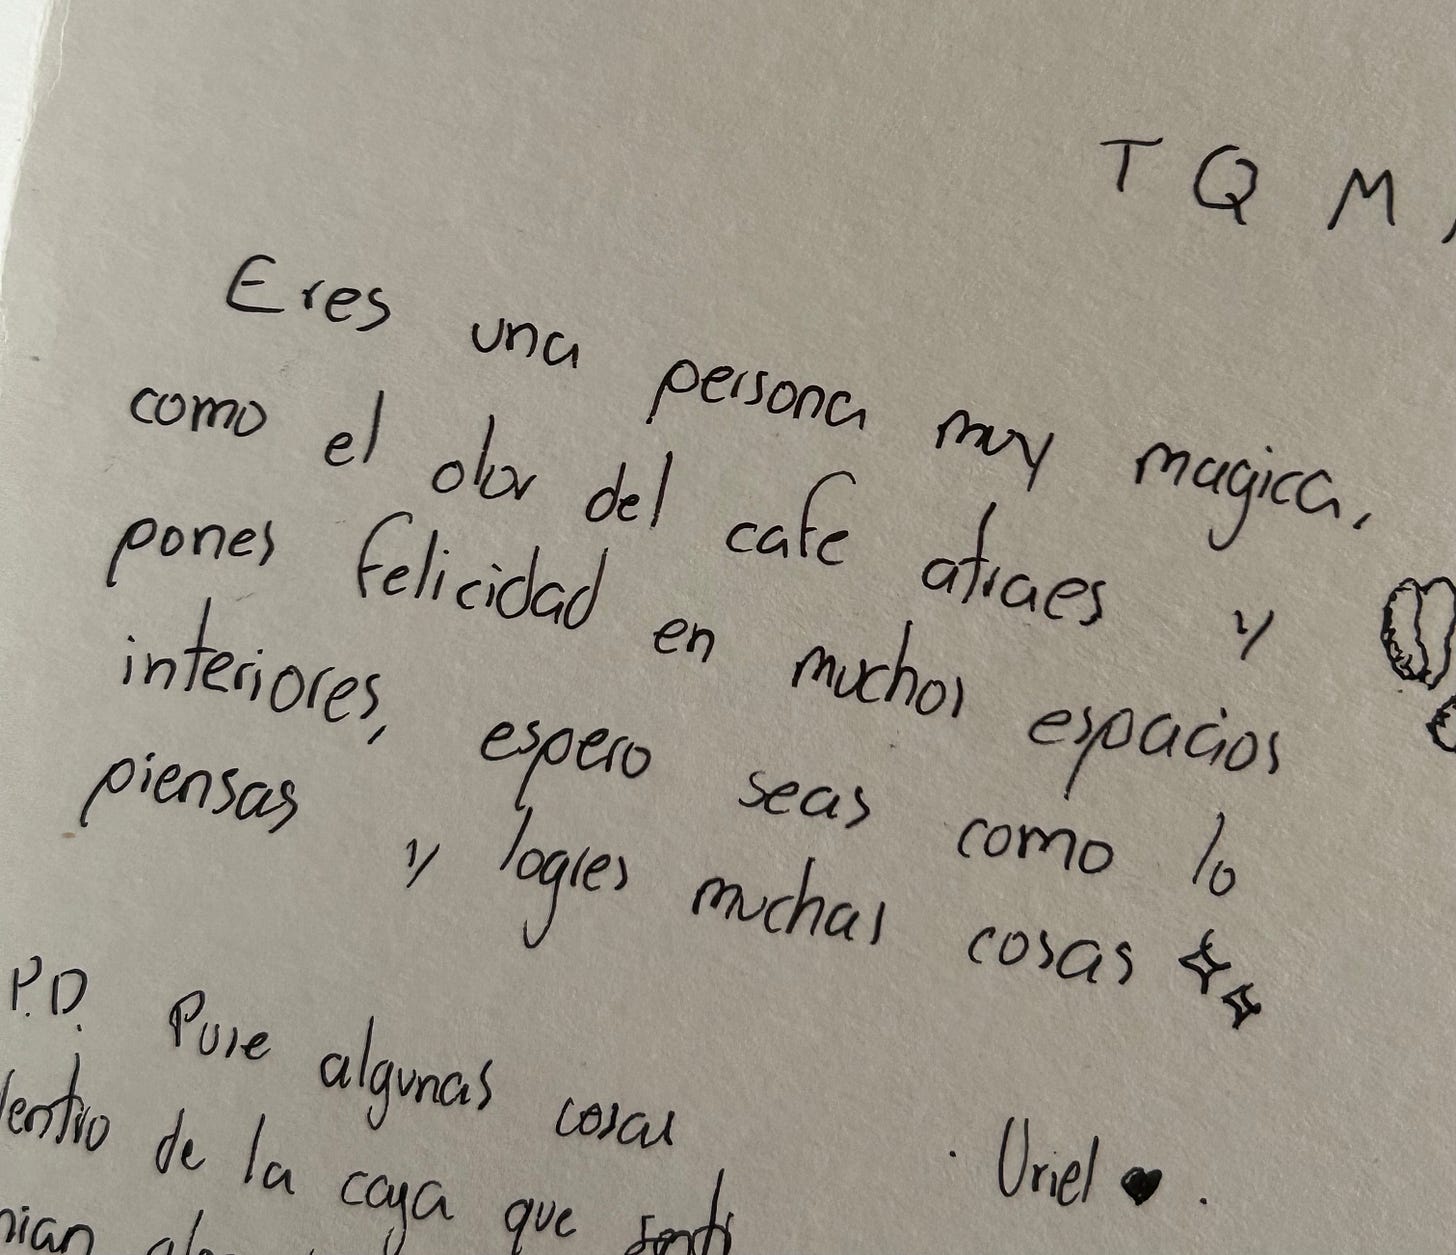 T Q M
Eres una persona muy magica,
como el olor del cafe atraes y
pones felicidad en muchos espacios
interiores, espero seas como lo
piensas y logres muchas cosas
P.D. Puse algunas cosas
dentro de la caya que sentí
Uriel